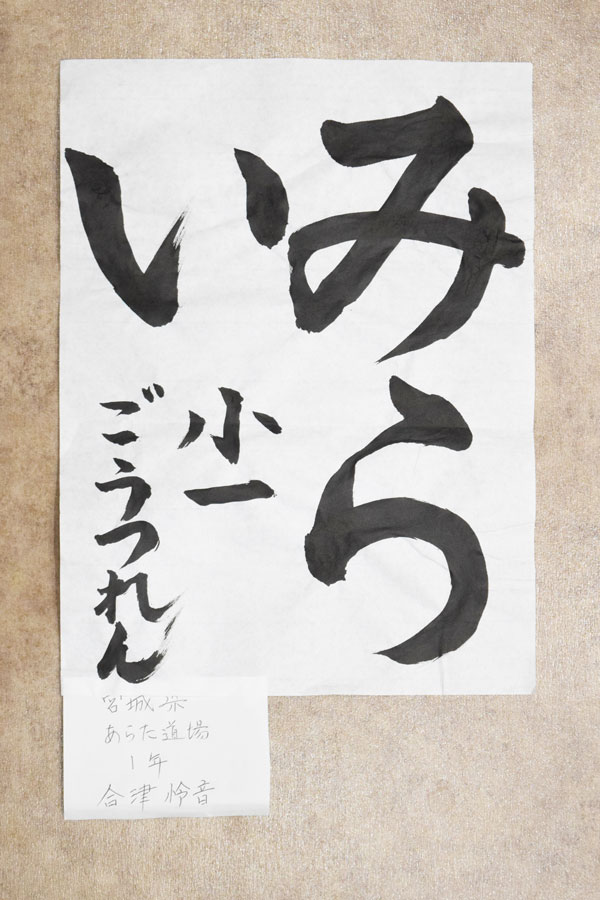 みら
い
小一
ごうつれん
宮城県
あらた道場
1年
合津怜音